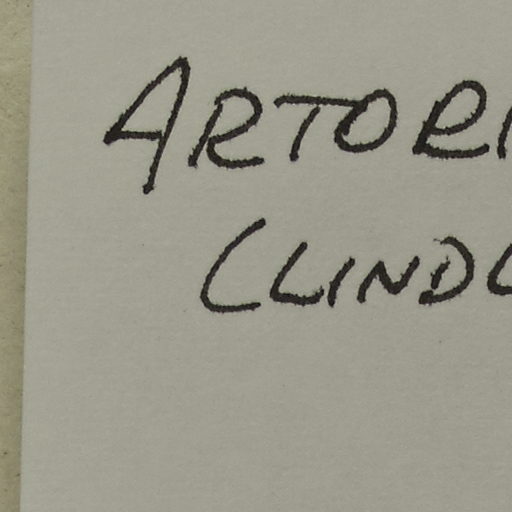 ARTORI
CLINDO